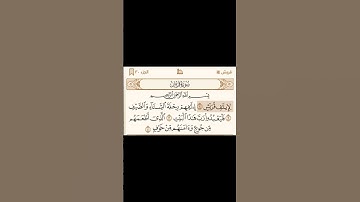 قريش الجزء ٣٠
سورة قريش
بسم الله الرحمن الرحيم
لِإِيلَٰفِ قُرَيْشٍ ۝١ إِۦلَٰفِهِمْ رِحْلَةَ ٱلشِّتَآءِ وَٱلصَّيْفِ
۝٢ فَلْيَعْبُدُوا۟ رَبَّ هَٰذَا ٱلْبَيْتِ ۝٣ ٱلَّذِىٓ أَطْعَمَهُم
مِّن جُوعٍ وَءَامَنَهُم مِّنْ خَوْفٍۭ ۝٤